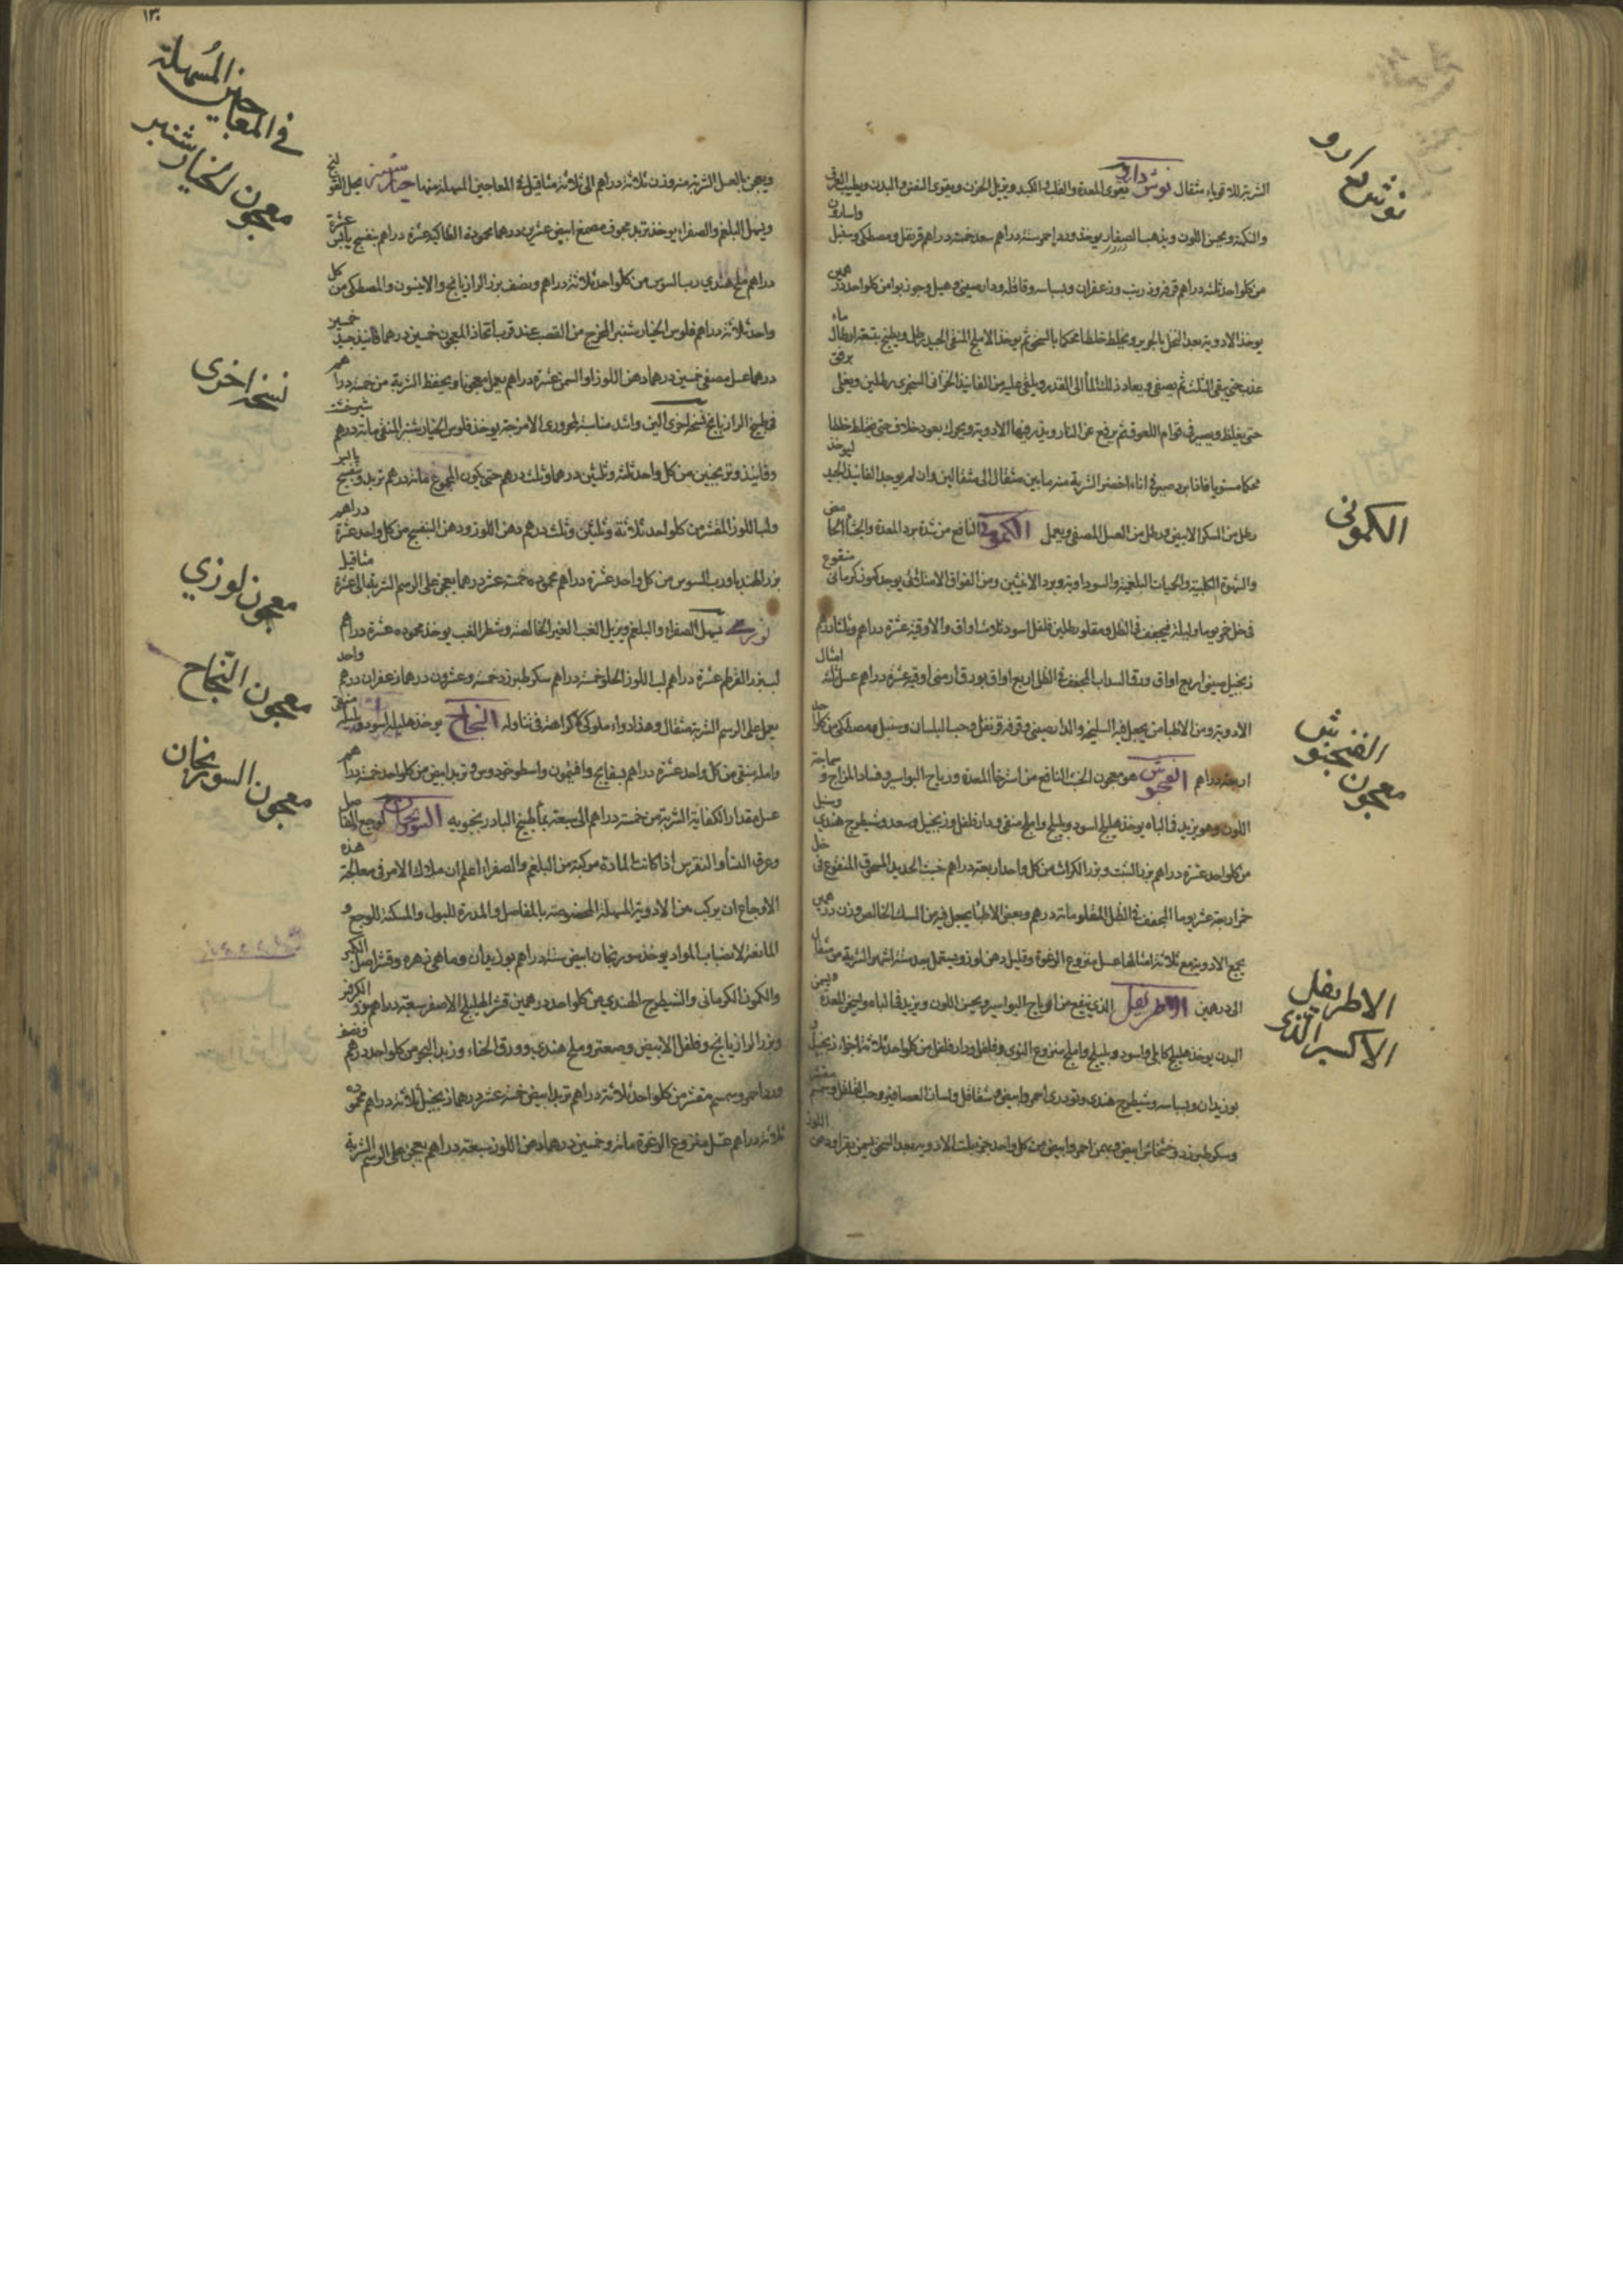 نوش دارو
الشربة للاقوياء مثقال نوش دارو يقوى المعدة والقلب والكبد ويزيل الحزن ويقوى النفس والبدن ويطيب العرق
والنكهة ويحسن اللون ويذهب الصفار يوخذ ورد احمر ستة دراهم سعد خمسة دراهم قرنفل ومصطكى وسنبل واسارون
من كلواحد ثلثه دراهم قرفه وزرنب وزعفران وبسباسه وقاقله ودارصينى وهيل وجوزبوا من كلواحد درهمين
يوخذ الادوية بعد النخل بالحرير ويخلط خلطا محكما بالسحق ثم يوخذ الاملج المنقى الجيد رطل ويطبخ بتسعة ارطال ماء
عذب حتى يبقى الثلث ثم يصفى ويعاد ذلك الماء الى القدر ويلقى عليه من الفانيذ الخزاف السنجرى رطلين ويغلى برفق
حتى يغلظ ويصير فى قوام اللعوق ثم يرفع عن النار ويذر فيها الادوية ويحرك بعود خلاف حتى يخلط خلطا
محكما مستويا فاذا برد صير فى اناء اخضر الشربة منه ما بين مثقال الى مثقالين وان لم يوجد الفانيذ الجيد ليوخذ
رطل من السكر الابيض ورطل من العسل المصفى ويعمل الكمونى النافع من شدة برد المعدة والجشاء الحامض
الكمونى
والشهوة الكلبية والحميات البلغمية والسوداوية وبرد الانثيين ومن الفواق الامتلائى يوخذ كمون كرمانى منقوع
فى خل خمر يوما وليلة فيجفف فى الظل ومقلو رطلين فلفل اسود ثلاث اواق والاوقيه عشرة دراهم وثلثا درهم
زنجبيل صينى اربع اواق ورق السداب المجفف فى الظل اربع اواق بورق ارمنى اوقيه عشرة دراهم عسل ثلثة امثال
الادوية ومن الاطبا من يجعل فيه السليخه والدارصينى وقرفه قرنفل وحب البلسان وسنبل ومصطكى من كلواحد
اربعة دراهم الفنجنوش هو معجون الخبث النافع من استرخاء المعدة ورياح البواسير وفساد المزاج وسماجة
الفنجنوش
معجون
اللون وهو يزيد فى الباه يوخذ هليلج اسود وبليلج واملج منقى ودارفلفل وزنجبيل وصعد وشيطرج هندى وسنبل
من كلواحد عشرة دراهم بزر الشبت وبزر الكراث من كل واحد اربعة دراهم خبث الحديد المسحوق المنقوع فى خل
خمر اربعة عشر يوما المجفف فى الظل المقلو مائة درهم وبعض الاطبا يجعل فيه من السك الخالص وزن درهمين
يجمع الادوية مع ثلاثة امثالها عسل منزوع الرغوة وقليل دهن لوز ويستعمل بعد ستة اشهر الشربة من مثقال
الى درهمين الاطريفل الذى ينفع من ارياح البواسير ويحسن اللون ويزيد فى الباه ويسخن المعدة ويسمن
الاطريفل
الاكسير الذى
البدن يوخذ هليلج كابلى واسود وبليلج واملج منزوع النوى وفلفل ودارفلفل من كلواحد ثلاثة اجزاء زنجبيل و
بوزيدان وبسباسه وشيطرج هندى وتودرى احمر وابيض وشقاقل ولسان العصافير وحب القلقل وسمسم مقشر
وسكر طبرزد وخشخاش ابيض وبهمن احمر وابيض من كل واحد جزء يلت الادوية بعد السحق بسمن بقر او دهن اللوز
١٣٠
فى المعاجين المسهلة
معجون الخيار شنبر
ويعجن بالعسل الشربة منه وزن ثلاثة دراهم الى ثلاثة مثاقيل فى المعاجين المسهلة منها خيار شنبر يحل القولنج
ويسهل البلغم والصفراء يوخذ تربد مجوف مصمغ ابيض عشرين درهما محموده انطاكيه عشرة دراهم بنفسج يابس عشرة
دراهم ملح هندى رب السوس من كلواحد ثلاثة دراهم ونصف بزر الرازيانج والانيسون والمصطكى من كل
واحد ثلاثة دراهم فلوس الخيار شنبر المخرج من القصب عند قرب اتخاذ المعجون خمسين درهما فانيذ جيد خمسين
درهما عسل مصفى خمسين درهما دهن اللوز او السمن عشرة دراهم يعمل معجونا ويحفظ الشربة من خمسة دراهم
نسخه اخرى
فى طبيخ الرازيانج نسخه اخرى الين واشد مناسبة لمحرورى الامزجة يوخذ فلوس الخيار شنبر المنقى مائة درهم شيرخشت
وفانيذ وترنجبين من كل واحد ثلثه وثلثين درهما وثلث درهم حتى يكون المجموع مائة درهم تربد وبنفسج يابس
ولب اللوز المقشر من كلواحد ثلاثة وثلثين وثلث درهم دهن اللوز ودهن البنفسج من كل واحد عشرة دراهم
بزر الهندباء ورب السوس من كل واحد عشرة دراهم محموده خمسة عشر درهما يعجن على الرسم الشربة الى عشرة مثاقيل
معجون لوزي
لوزى يسهل الصفراء والبلغم ويزيل الغب الغير الخالصة وشطر الغب يوخذ محموده عشرة دراهم
لب بزر القرطم عشرة دراهم لب اللوز الحلو خمسة دراهم سكر طبرزد خمسة وعشرون درهما زعفران درهم واحد
معجون النجاح
يعمل على الرسم الشربة مثقال وهذا دواء ملوكى لا كراهة فى تناوله النجاح يوخذ هليلج اسود وبليلج منقى
واملج منقى من كل واحد عشرة دراهم بسفايج وافتيمون واسطوخودوس وتربد ابيض من كلواحد خمسة دراهم
معجون السورنجان
عسل مقدار الكفاية الشربة من خمسة دراهم الى سبعة بماء طبيخ البادرنجبويه السورنجان لوجع المفاصل
وعرق النسا والنقرس اذا كانت المادة مركبة من البلغم والصفراء اعلم ان ملاك الامر فى معالجة هذه
الاوجاع ان يركب من الادوية المسهلة المخصوصة بالمفاصل والمدرة للبول والمسكنة للوجع و
المانعة لانصباب المواد يوخذ سورنجان ابيض ستة دراهم بوزيدان وماهى زهره وقشر اصل الكبر
والكمون الكرمانى والشيطرج الهندى من كلواحد درهمين قشر الهليلج الاصفر سبعة دراهم بزر الكرفس
وبزر الرازيانج وفلفل الابيض وصعتر وملح هندى وورق الحناء وزبد البحر من كلواحد درهم ونصف
ورد احمر وسمسم مقشر من كلواحد ثلاثة دراهم تربد ابيض خمسة عشر درهما زنجبيل ثلاثة دراهم محموده
ثلاثة دراهم عسل منزوع الرغوة مائة وخمسين درهما دهن اللوز سبعة دراهم يعجن على الرسم الشربة